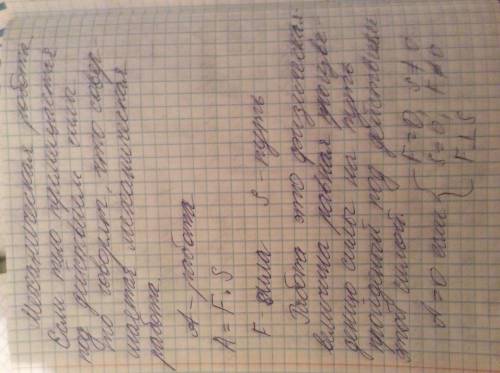 Механическая работа
Если тело перемещается
под действием силы
то говорят, что совер-
шается механическая
работа.
A - работа
A = F · S
F - сила S - путь
Работа это физическая
величина равная произве
дению силы на путь
пройденный под действием
этой силой.
A=0 если { F=0, S≠0
S=0, F≠0
F⊥S